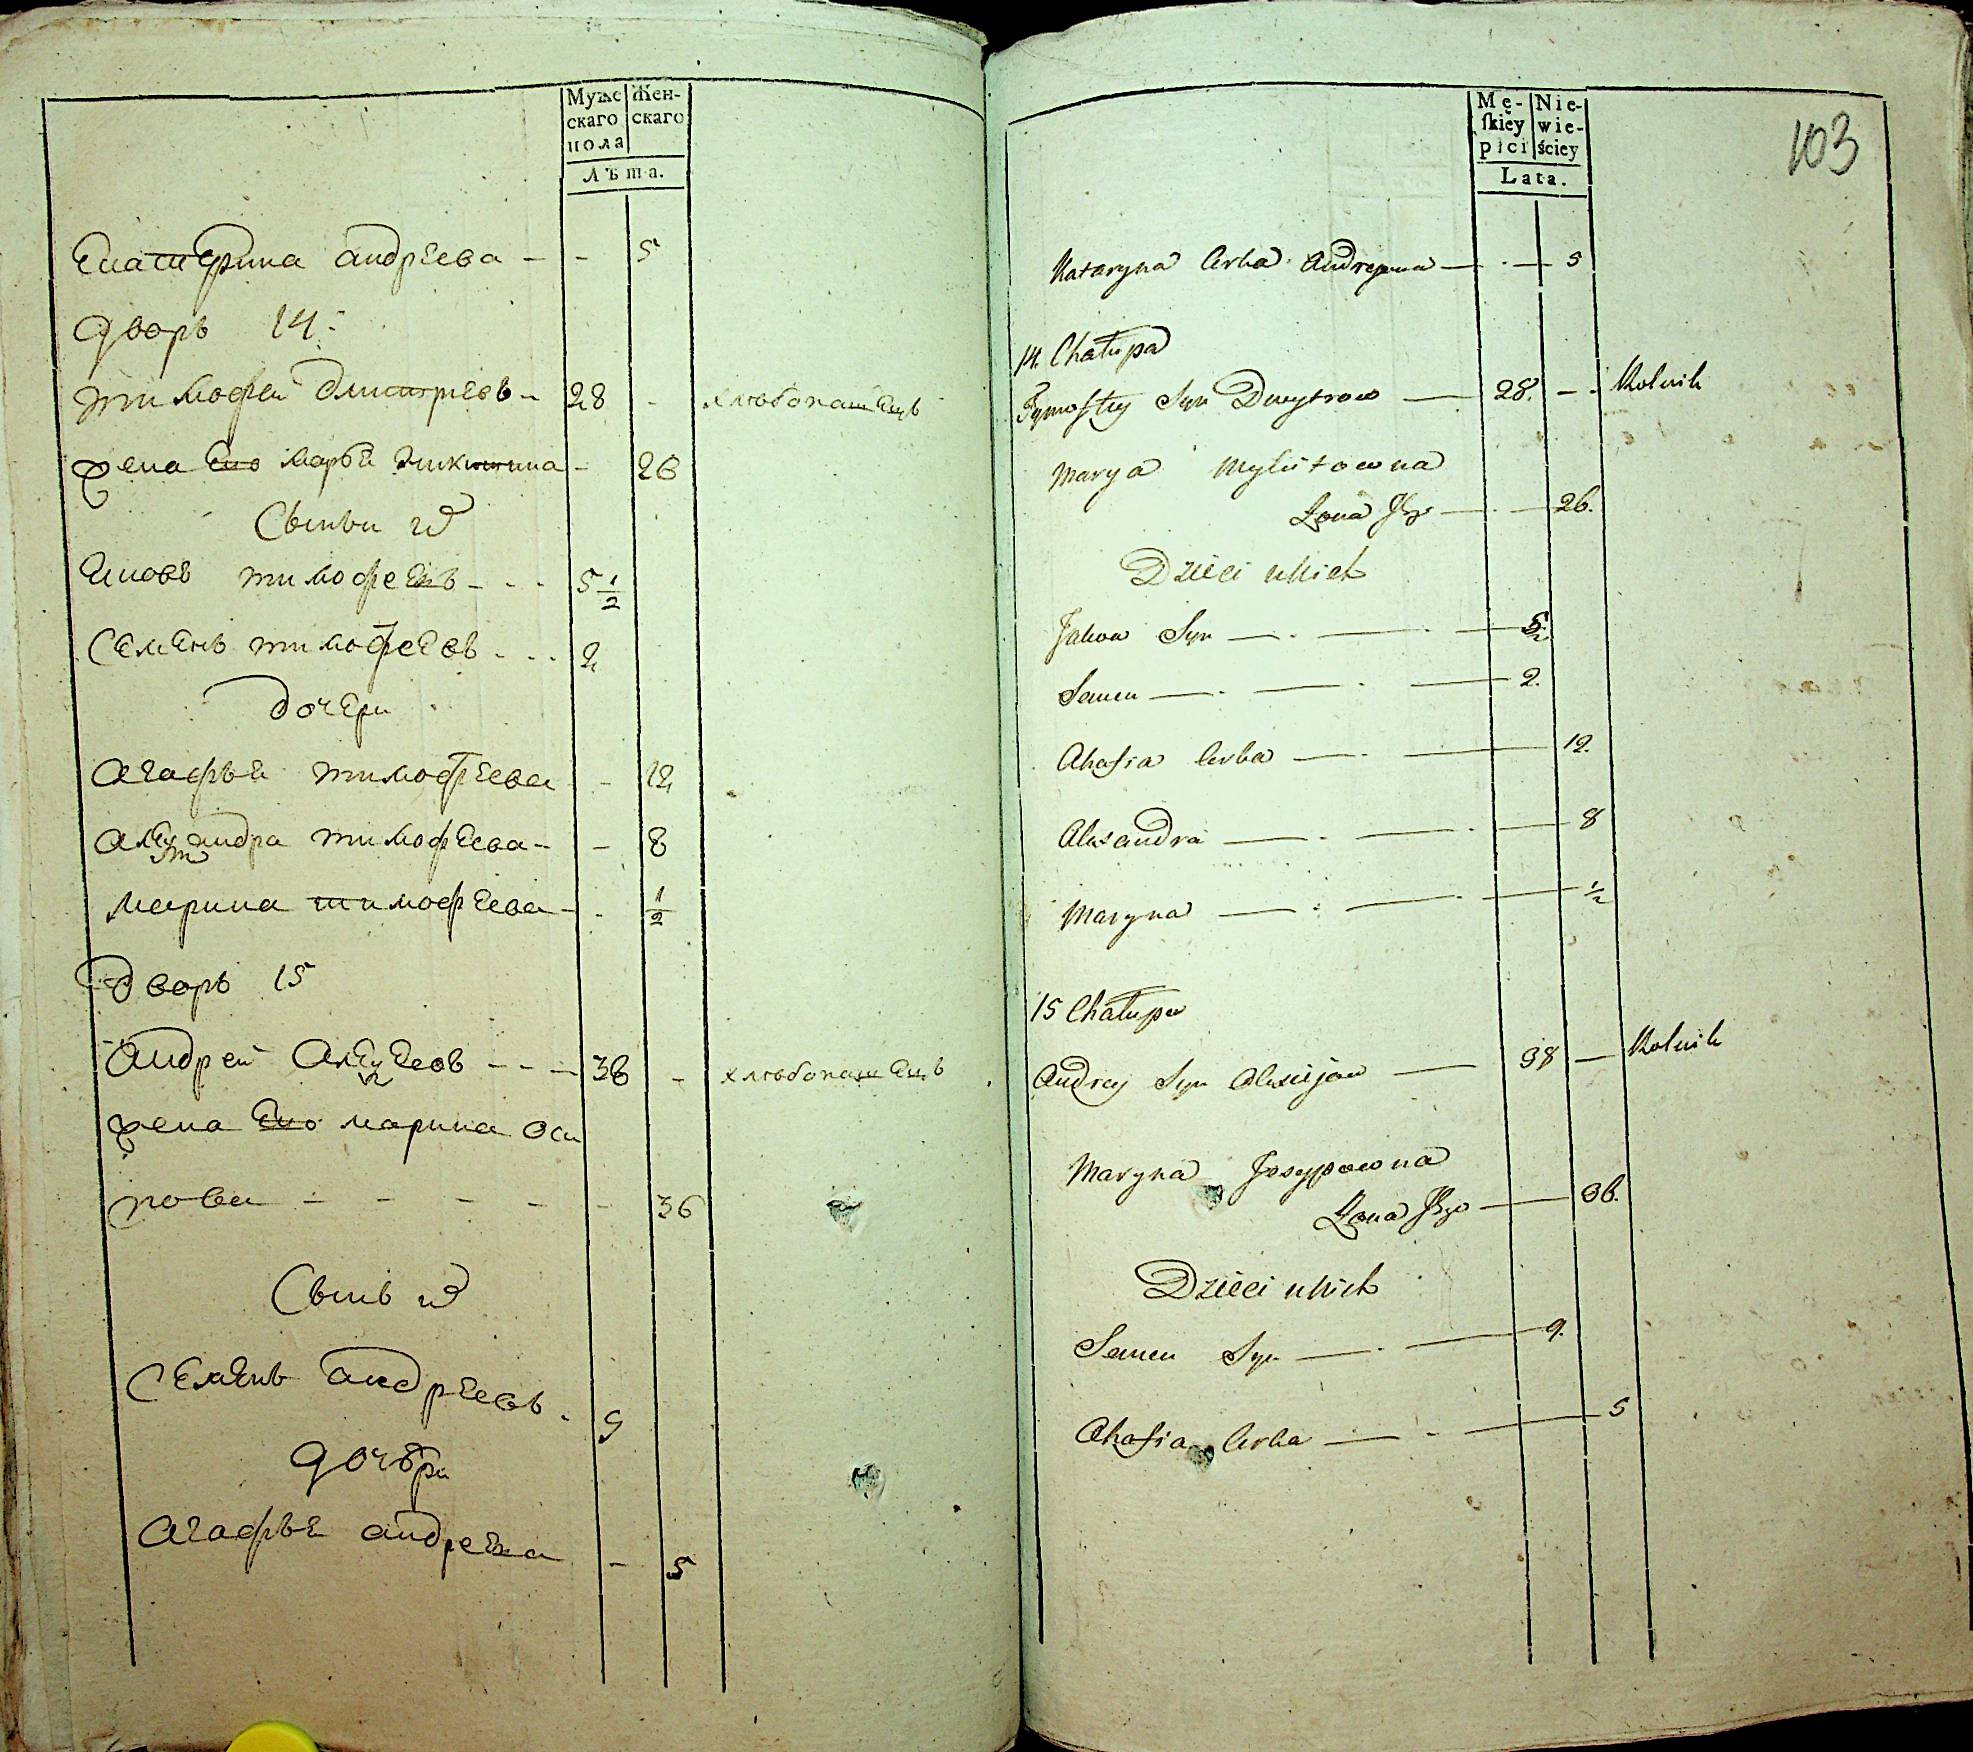 Мужс Жен-
скаго скаго
пола
Лѣта.
Екатерина андреева - - 5
дворъ 14:
тимофей дмитриевъ - 28 - хлѣбопашецъ
жена ево марья никитина - 26
Сынъи их
яковъ тимофеевъ - - - 5 1/2
семенъ тимофеевъ - - - 2
дочери
агафья тимофеева - 12
александра тимофеева - - 8
марина тимофеева - - 1/2
дворъ 15
андрей алексеевъ - - - 38 - хлѣбопашецъ
жена ево марина оси
пова - - - - - 36
Сынъ их
семенъ андреевъ - 9
дочери
агафья андреева - 5
Mę- Nie-
ſkiey wie-
płci ściey
Lata.
103
Kataryna Corka Andrejowna — . — 5
14. Chałupa
Tymofiey Syn Dmytrow — 28. — . Rolnik
Marya Mykitowna
Zona Jego — . — 26.
Dzieci u Nich
Jakow Syn — . — . — 5 1/2
Semen — . — . — 2.
Ahafia Corka — . — 12.
Alexandra — . — . — 8
Maryna — . — . — 1/2
15 Chałupa
Andrey Syn Alexiejow — 38 — Rolnik
Maryna Josypowna
Zona Jego — 36.
Dzieci u Nich
Semen Syn — . — 9.
Ahafia Corka — . — 5